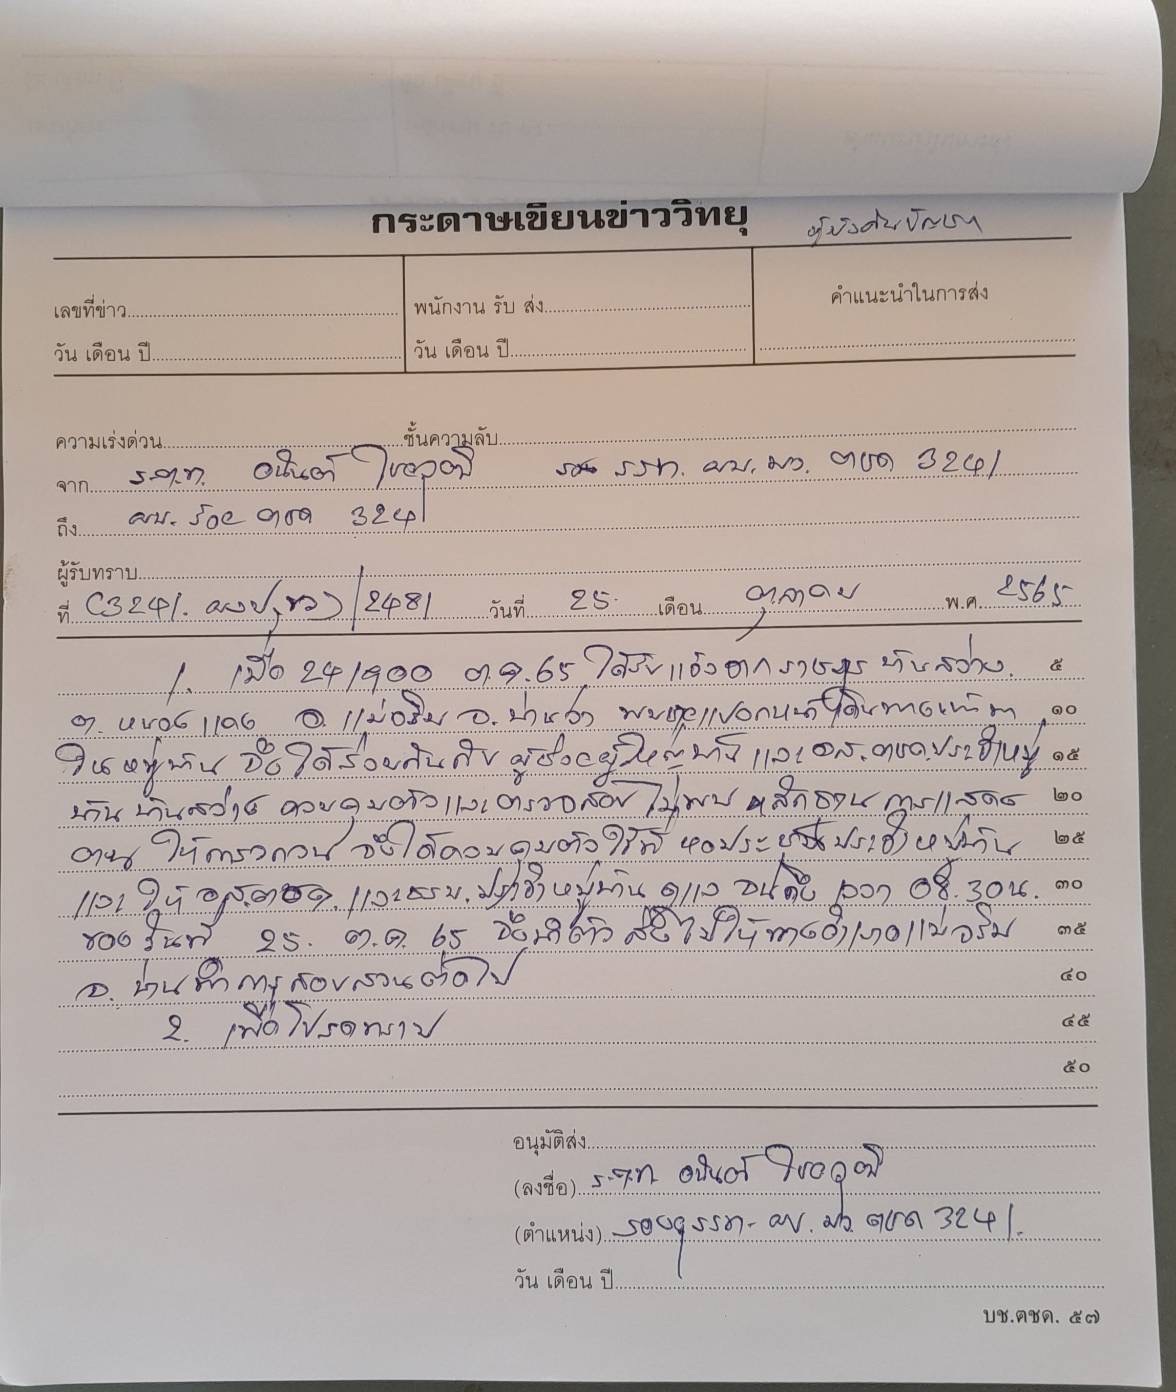 กระดาษเขียนข่าววิทยุ
เลขที่ข่าว
พนักงาน รับ ส่ง
คำแนะนำในการส่ง
วัน เดือน ปี
วัน เดือน ปี
ความเร่งด่วน ชั้นความลับ
จาก ร.ต.ท. อนันต์ รรท. ผบ.มว. ตชด 3241
ถึง ผบ. ร้อย ตชด 324
ผู้รับทราบ
ที่ 2481 วันที่ 25 เดือน ตุลาคม พ.ศ. 2565
1. เมื่อ 241900 ต.ค. 65 ได้รับแจ้งจากราษฎร บ้านสว่าง ๕
ต. หนองแดง อ. แม่จริม จ. น่าน ว่า พบชายแปลกหน้าเดินทางเข้ามา ๑๐
ในหมู่บ้าน จึงได้ร่วมกันกับ ผู้ช่วยผู้ใหญ่บ้าน และ อส.ตชด.ประจำหมู่ ๑๕
บ้าน บ้านสว่าง ควบคุมตัวและตรวจสอบ ไม่พบ หลักฐาน การแสดง ๒๐
ตน ให้ตรวจ จึงได้ควบคุมตัวไว้ที่ หอประชุมประจำหมู่บ้าน ๒๕
และ ให้ อส.ตชด. และ ชรบ. ประจำหมู่บ้าน ดูแล จนถึง เวลา 08.30 น. ๓๐
ของวันที่ 25 ต.ค. 65 จึงนำตัว ส่งไปให้ทางอำเภอแม่จริม ๓๕
จ. น่าน ทำการสอบสวนต่อไป ๔๐
2. เพื่อโปรดทราบ ๔๕
๕๐
อนุมัติส่ง
(ลงชื่อ) ร.ต.ท. อนันต์
(ตำแหน่ง) รรท. ผบ. มว. ตชด 3241
วัน เดือน ปี
บช.ตชด. ๕๗